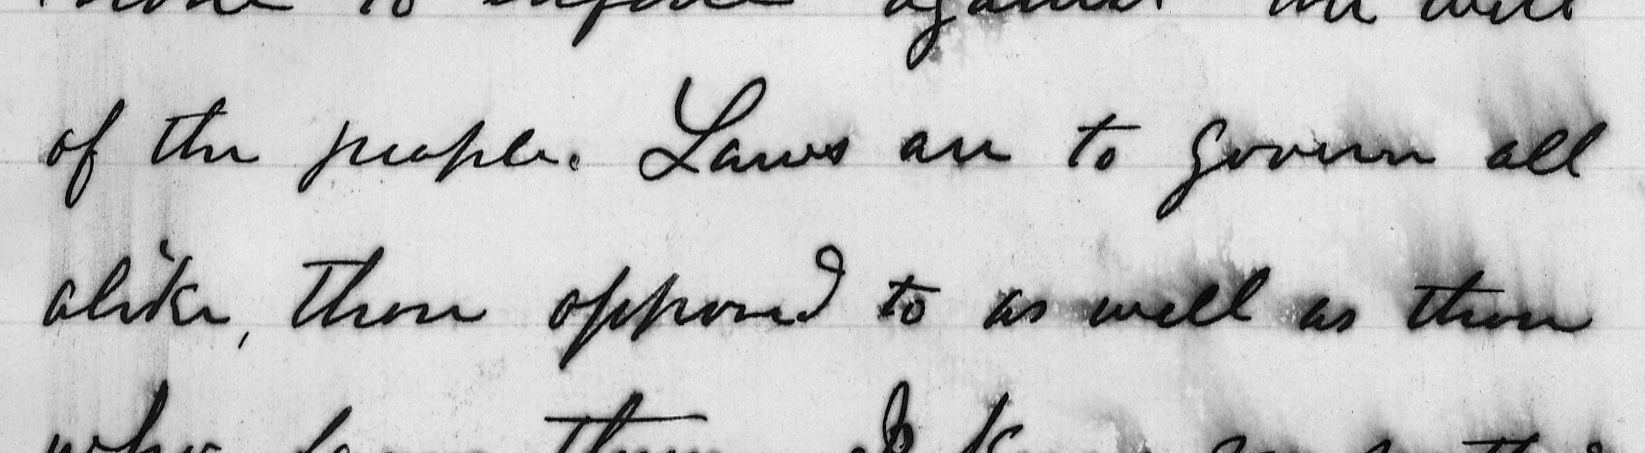 to enforce against the will
of the people. Laws are to govern all
alike, those opposed to as well as those
who favor them. I know no method